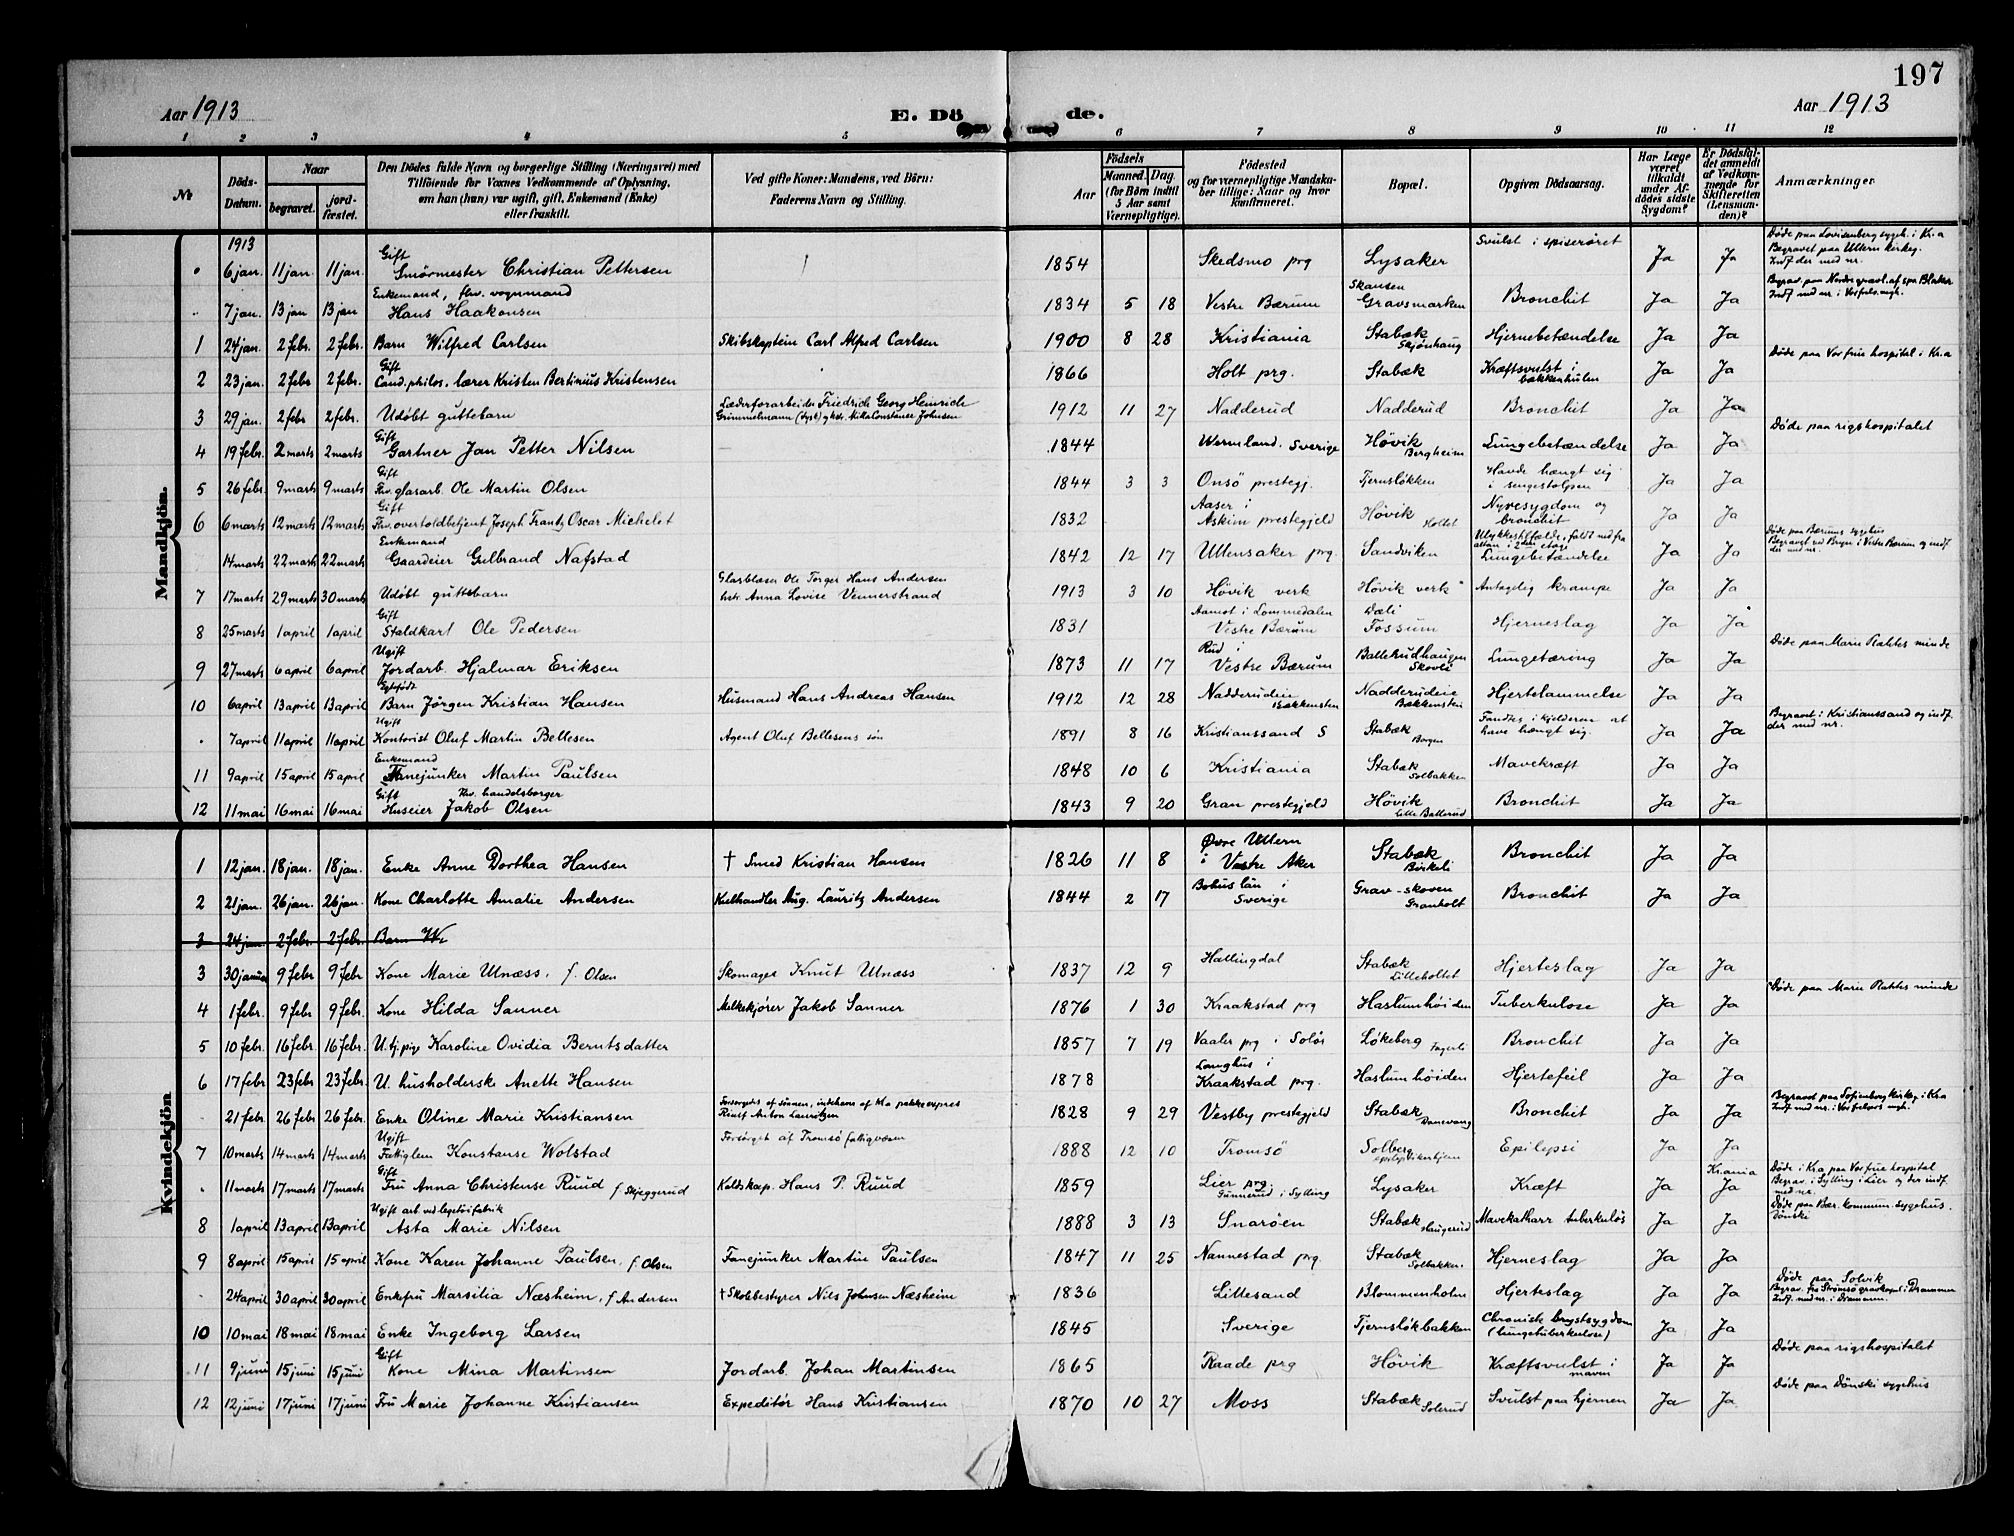 197
Aar 1913
E. Döde.
Aar 1913
1 2 3 4 5 6 7 8 9 10 11 12
№
Döds-Datum.
Naar
begravet. jordfæstet.
Den Dödes fulde Navn og borgerlige Stilling (Næringsvei) med
Tilföiende for Voxnes Vedkommende af Oplysning,
om han (hun) var ugift, gift, Enkemand (Enke)
eller fraskilt.
Ved gifte Koner: Mandens, ved Börn:
Faderens Navn og Stilling.
Födsels
Aar Maaned. Dag
(for Börn indtil 5 Aar samt Værnepligtige).
Födested
og for værnepligtige Mandskaber tillige: Naar og hvor konfirmeret.
Bopæl.
Opgiven Dödsaarsag.
Har Læge været tilkaldt under Afdödes sidste Sygdom?
Er Dödsfaldet anmeldt af Vedkommende for Skifteretten (Lensmanden)?
Anmærkninger
Mandkjön.
1913
6 jan. 11 jan. 11 jan. Gift Smörmester Christian Pettersen 1854 Skedsmo prg Lysaker Svulst i spiserøret Ja Ja Døde paa Lovisenberg sygeh. i Kr.a Begravet paa Ullern kirkeg. Indf der med nr.
7 jan. 13 jan 13 jan Enkemand, fhv. vognmand Hans Haakonsen 1834 5 18 Vestre Bærum Skansen Gravsmarken Bronchit Ja Ja Begrav. paa Nordre gravl. af spr Blakar Indf med nr. i Vor frels. mgh.
1 24 jan. 2 febr. 2 febr. Barn Wilfred Carlsen Skibskaptein Carl Alfred Carlsen 1900 8 28 Kristiania Stabæk Skjønhaug Hjernebetændelse Ja Ja
2 23 jan. 2 febr 2 febr. Gift Cand. philos. lærer Kristen Bertinius Kristensen 1866 Holt prg. Stabæk Kræftsvulst i bækkenhulen Ja Ja Døde paa Vor frue hospital i Kr.a
3 29 jan. 2 febr 2 febr. Udöbt guttebarn Læderforarbeider Friedrich Georg Heinrich Grimmelmann (tysk) og hstr. Milla Constanse Johnsen 1912 11 27 Nadderud Nadderud Bronchit Ja Ja
4 19 febr. 2 marts 2 marts Gift Gartner Jan Petter Nilsen 1844 Wermland. Sverige Høvik Bergheim Lungebetændelse Ja Ja Døde paa rigshospitalet
5 26 febr. 9 marts 9 marts Gift Fhv. glasarb. Ole Martin Olsen 1844 3 3 Onsö prestegj. Tjernsløkken Havde hængt sig i sengestolpen Ja Ja
6 6 marts 12 marts 12 marts Gift Fhv. overtoldbetjent Joseph Frantz Oscar Michelet 1832 Aaser i Askim prestegjeld Høvik Holtet Nyresygdom og bronchit Ja Ja
14 marts 22 marts 22 marts Enkemand Gaardeier Gulbrand Nafstad 1842 12 17 Ullensaker prg. Sandviken Ulykkestilfælde, faldt ned fra altan i 2den etage Lungebetændelse Ja Ja Døde paa Bærums sygehus Begravet ved Bryn i Vestre Bærum og indf der med nr.
7 17 marts 29 marts 30 marts Udöbt guttebarn Glasblæser Ole Torger Hans Andersen hstr. Anna Lovise Vennerstrand 1913 3 10 Høvik verk Høvik verk Antagelig krampe Ja Ja
8 25 marts 1 april 1 april Gift Staldkarl Ole Pedersen 1831 Aamot i Lommedalen Vestre Bærum Dæli Fossum Hjerneslag Ja Ja
9 27 marts 6 april 6 april Ugift Jordarb. Hjalmar Eriksen 1873 11 17 Rud i Vestre Bærum Ballerudhaugen Skovli Lungetæring Ja Ja Døde paa Marie Plahtes minde
10 6 april 13 april 13 april Egtefödt Barn Jörgen Kristian Hansen Husmand Hans Andreas Hansen 1912 12 28 Nadderudeie Bakkensten Nadderudeie Bakkensten Hjertelammelse Ja Ja
7 april 11 april 11 april Ugift Kontorist Oluf Martin Bellesen Agent Oluf Bellesens søn 1891 8 16 Kristianssand S Stabæk Borgen Fandtes i kjelderen at have hængt sig. Ja Ja Begravet i Kristianssand og indf. der med nr.
11 9 april 15 april 15 april Enkemand Fanejunker Martin Paulsen 1848 10 6 Kristiania Stabæk Solbakken Mavekræft Ja Ja
12 11 mai 16 mai 16 mai Gift Fhv. handelsborger Huseier Jakob Olsen 1843 9 20 Gran prestegjeld Høvik Lille Ballerud Bronchit Ja Ja
Kvindekjön
1 12 jan. 18 jan. 18 jan. Enke Anne Dorthea Hansen † Smed Kristian Hansen 1826 11 8 Øvre Ullern i Vestre Aker Stabæk Birkeli Bronchit Ja Ja
2 21 jan. 26 jan. 26 jan. Kone Charlotte Amalie Andersen Kulhandler Aug. Lauritz Andersen 1844 2 17 Bohuslän i Sverige Grav-skoven Granholt Bronchit Ja Ja
3 24 jan. 2 febr. 2 febr. Barn W.
3 30 januar 9 febr 9 febr Kone Marie Unæss, f. Olsen Skomager Knut Unæss 1837 12 9 Hallingdal Stabæk Lilleholtet Hjerteslag Ja Ja
4 1 febr. 9 febr 9 febr. Kone Hilda Sanner Melkekjører Jakob Sanner 1876 1 30 Kraakstad prg Haslumhøiden Tuberkulose Ja Ja Døde paa Marie Plahtes minde
5 10 febr. 16 febr. 16 febr. U. tj. pige Karoline Ovidia Berntsdatter 1857 7 19 Vaaler prg i Solør Løkeberg Fagerli Bronchit Ja Ja
6 17 febr 23 febr 23 febr. U. husholderske Anette Hansen 1878 Langhus i Kraakstad prg. Haslumhøiden Hjertefeil Ja Ja
21 febr 26 febr. 26 febr. Enke Oline Marie Kristiansen Forsørgedes af sønnen, Anton Lauritzen 1828 9 29 Vestby prestegjeld Stabæk Danevang Bronchit Ja Ja Begravet paa Sofienberg kirkeg. i Kr.a Indf med nr. i Vor frelsers mgh.
7 10 marts 14 marts 14 marts Ugift Fattiglem Konstanse Wolstad Forsörget af Tromsö fattigvæsen 1888 12 10 Tromsö Solberg epileptikerhjem Epilepsi Ja Ja
11 marts 17 marts 17 marts Gift Fru Anna Christense Ruud f Skjeggerud Koldskap. Hans P. Ruud 1859 Lier prg. Gunnerud i Sylling Lysaker Kræft Ja Krania Ja Døde i Kr.a paa Vor frue hospital Begrav. i Sylling i Lier og der indf. med nr.
8 1 april 13 april 13 april Ugift arb ved legetöifabrik Asta Marie Nilsen 1888 3 13 Snarøen Stabæk Haugerud Mavekatharr tuberkuløs Ja Ja Døde paa Bær. kommun. sygehus. Dønski
9 8 april 15 april 15 april Kone Karen Johanne Paulsen, f. Olsen Fanejunker Martin Paulsen 1847 11 25 Nannestad prg. Stabæk Solbakken. Hjerneslag Ja Ja
24 april 30 april 30 april Enkefru Marsilia Næsheim, f Andersen † Skolebestyrer Nils Johnsen Næsheim 1836 Lillesand Blommenholm Hjerteslag Ja Ja Døde paa Solvik Begrav. fra Strömsö gravkapel i Drammen Indf. med nr. i Drammen.
10 10 mai 18 mai 18 mai Enke Ingeborg Larsen 1845 Sverige Tjernsløkbakken Chronisk brystsygdom (Lungetuberkulose) Ja Ja
11 9 juni 15 juni 15 juni Gift Kone Mina Martinsen Jordarb. Johan Martinsen 1865 Raade prg Høvik Kræftsvulst i maven Ja Ja Døde paa rigshospitalet
12 12 juni 17 juni 17 juni Fru Marie Johanne Kristiansen Expeditør Hans Kristiansen 1870 10 27 Moss Stabæk Solerud Svulst paa hjernen Ja Ja Døde paa Dönski sygehus